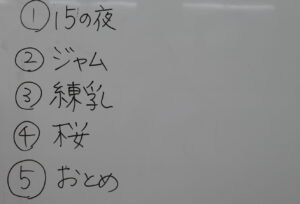 ①15の夜
②ジャム
③練乳
④桜
⑤おとめ